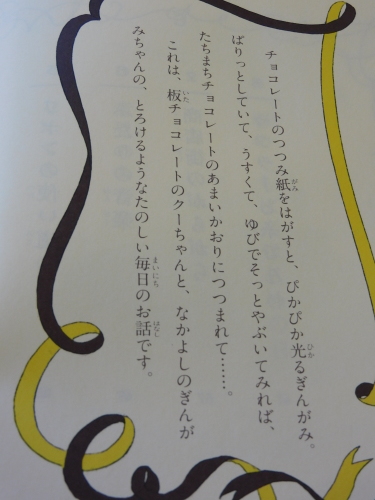 チョコレートのつつみ紙をはがすと、ぴかぴか光るぎんがみ。
ぱりっとしていて、うすくて、ゆびでそっとやぶいてみれば、
たちまちチョコレートのあまいかおりにつつまれて……。
これは、板チョコレートのクーちゃんと、なかよしのぎんが
みちゃんの、とろけるようなたのしい毎日のお話です。